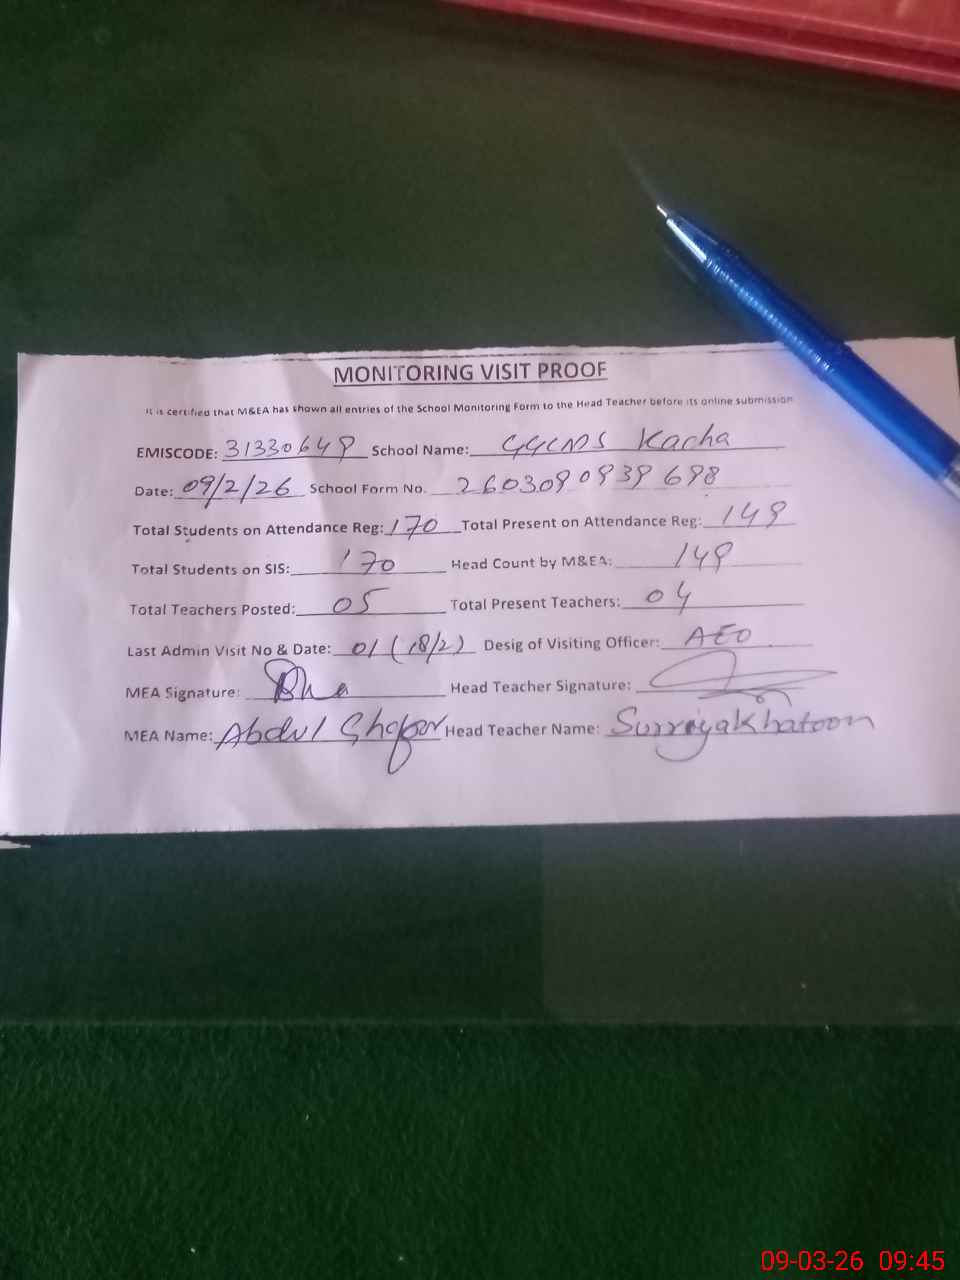 MONITORING VISIT PROOF
It is certified that M&EA has shown all entries of the School Monitoring Form to the Head Teacher before its online submission
EMISCODE: 31330649 School Name: GGCMS Kacha
Date: 09/2/26 School Form No. 2603090939698
Total Students on Attendance Reg: 170 Total Present on Attendance Reg: 149
Total Students on SIS: 170 Head Count by M&EA: 149
Total Teachers Posted: 05 Total Present Teachers: 04
Last Admin Visit No & Date: 01 (18/2) Desig of Visiting Officer: AEO
MEA Signature: Head Teacher Signature:
MEA Name: Abdul Ghafoor Head Teacher Name: Surriya Khatoon
09-03-26 09:45